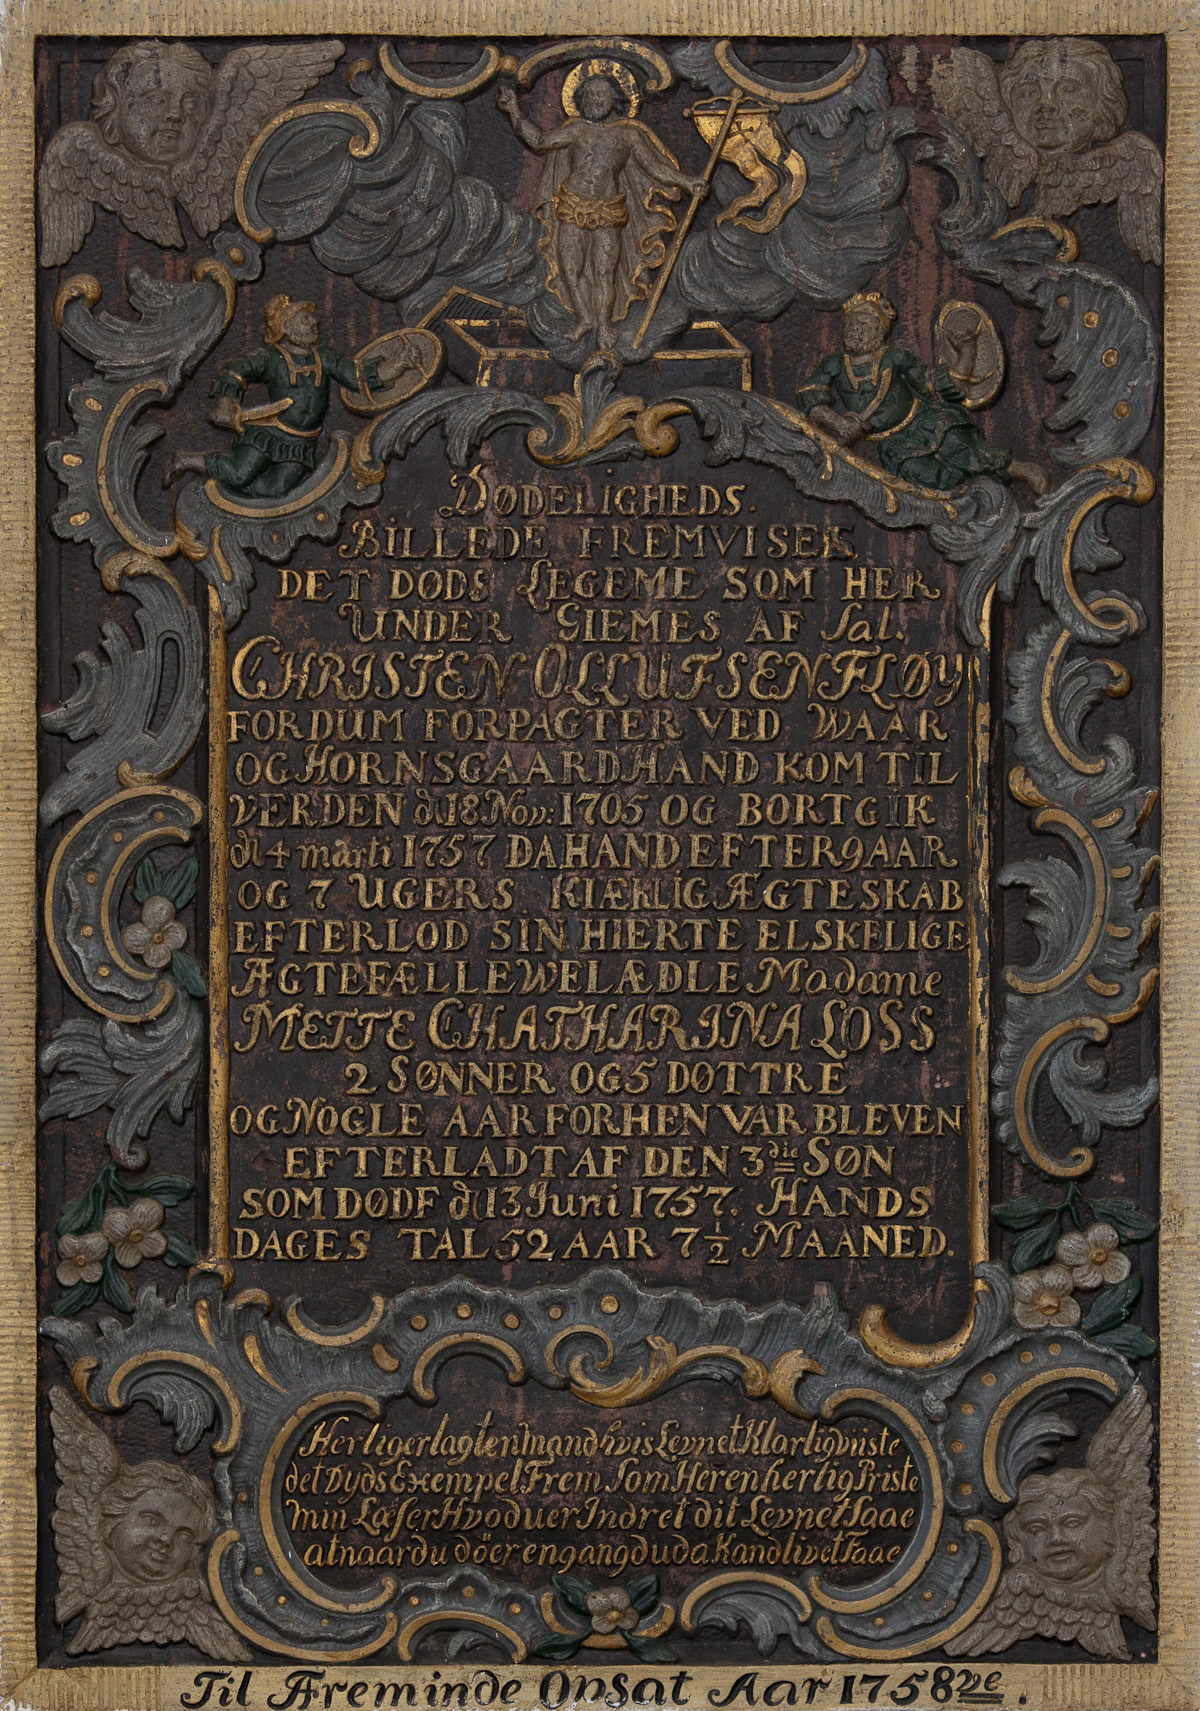 DØDELIGHEDS.
BILLEDE FREMVISER
DET DØDS LEGEME SOM HER
UNDER GIEMES AF Sal.
CHRISTEN OLLUFSEN FLØY
FORDUM FORPAGTER VED WAAR
OG HORNSGAARD HAND KOM TIL
VERDEN dl 18 Nov: 1705 OG BORTGIK
dl 4 marti 1757 DA HAND EFTER 9 AAR
OG 7 UGERS KIÆRLIG ÆGTESKAB
EFTERLOD SIN HIERTE ELSKELIGE
ÆGTEFÆLLE WELÆDLE Madame
METTE CHATHARINA LOSS
2 SØNNER OG 5 DØTTRE
OG NOGLE AAR FORHEN VAR BLEVEN
EFTERLADT AF DEN 3die SØN
SOM DØDE dl 13 Juni 1757. HANDS
DAGES TAL 52 AAR 7 1/2 MAANED.
Her liger lagt en mand hvis Levnet Klarlig viiste
det Dyds Exempel Frem Som Her en herlig Priste
min Læser Hvod uer Indret dit Levnet Saae
at naar du döer engang du da Kand livet Faae
Til Æreminde Opsat Aar 1758ve.